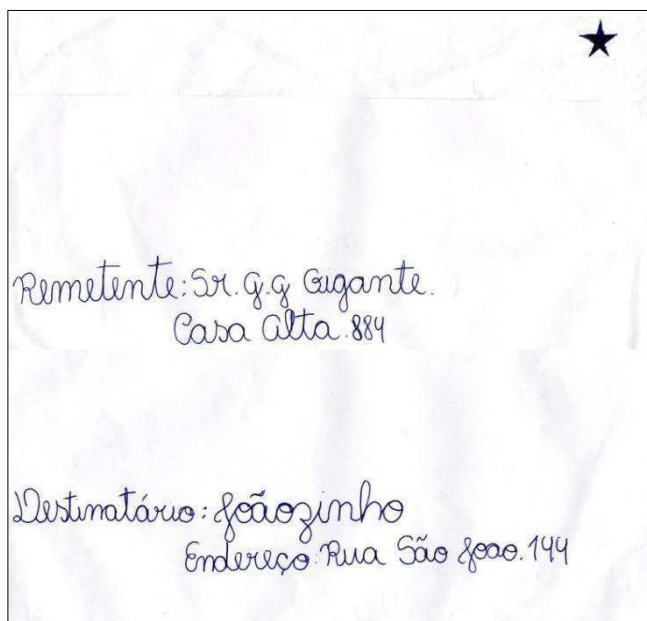 Remetente: Sr. G.g Gigante.
Casa Alta. 884
Destinatário: Joãozinho
Endereço: Rua São Joao. 144